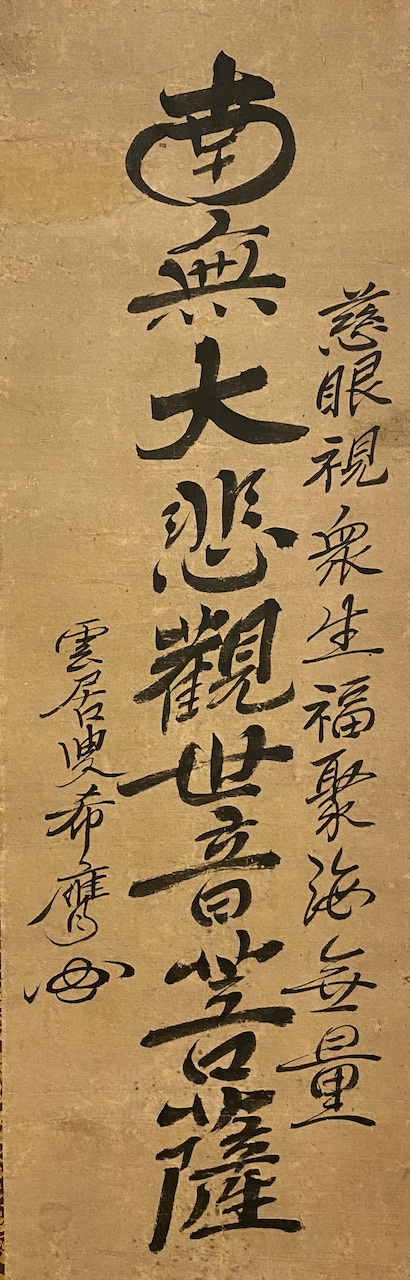 慈眼視衆生福聚海無量
南無大悲觀世音菩薩
雲居叟希膺